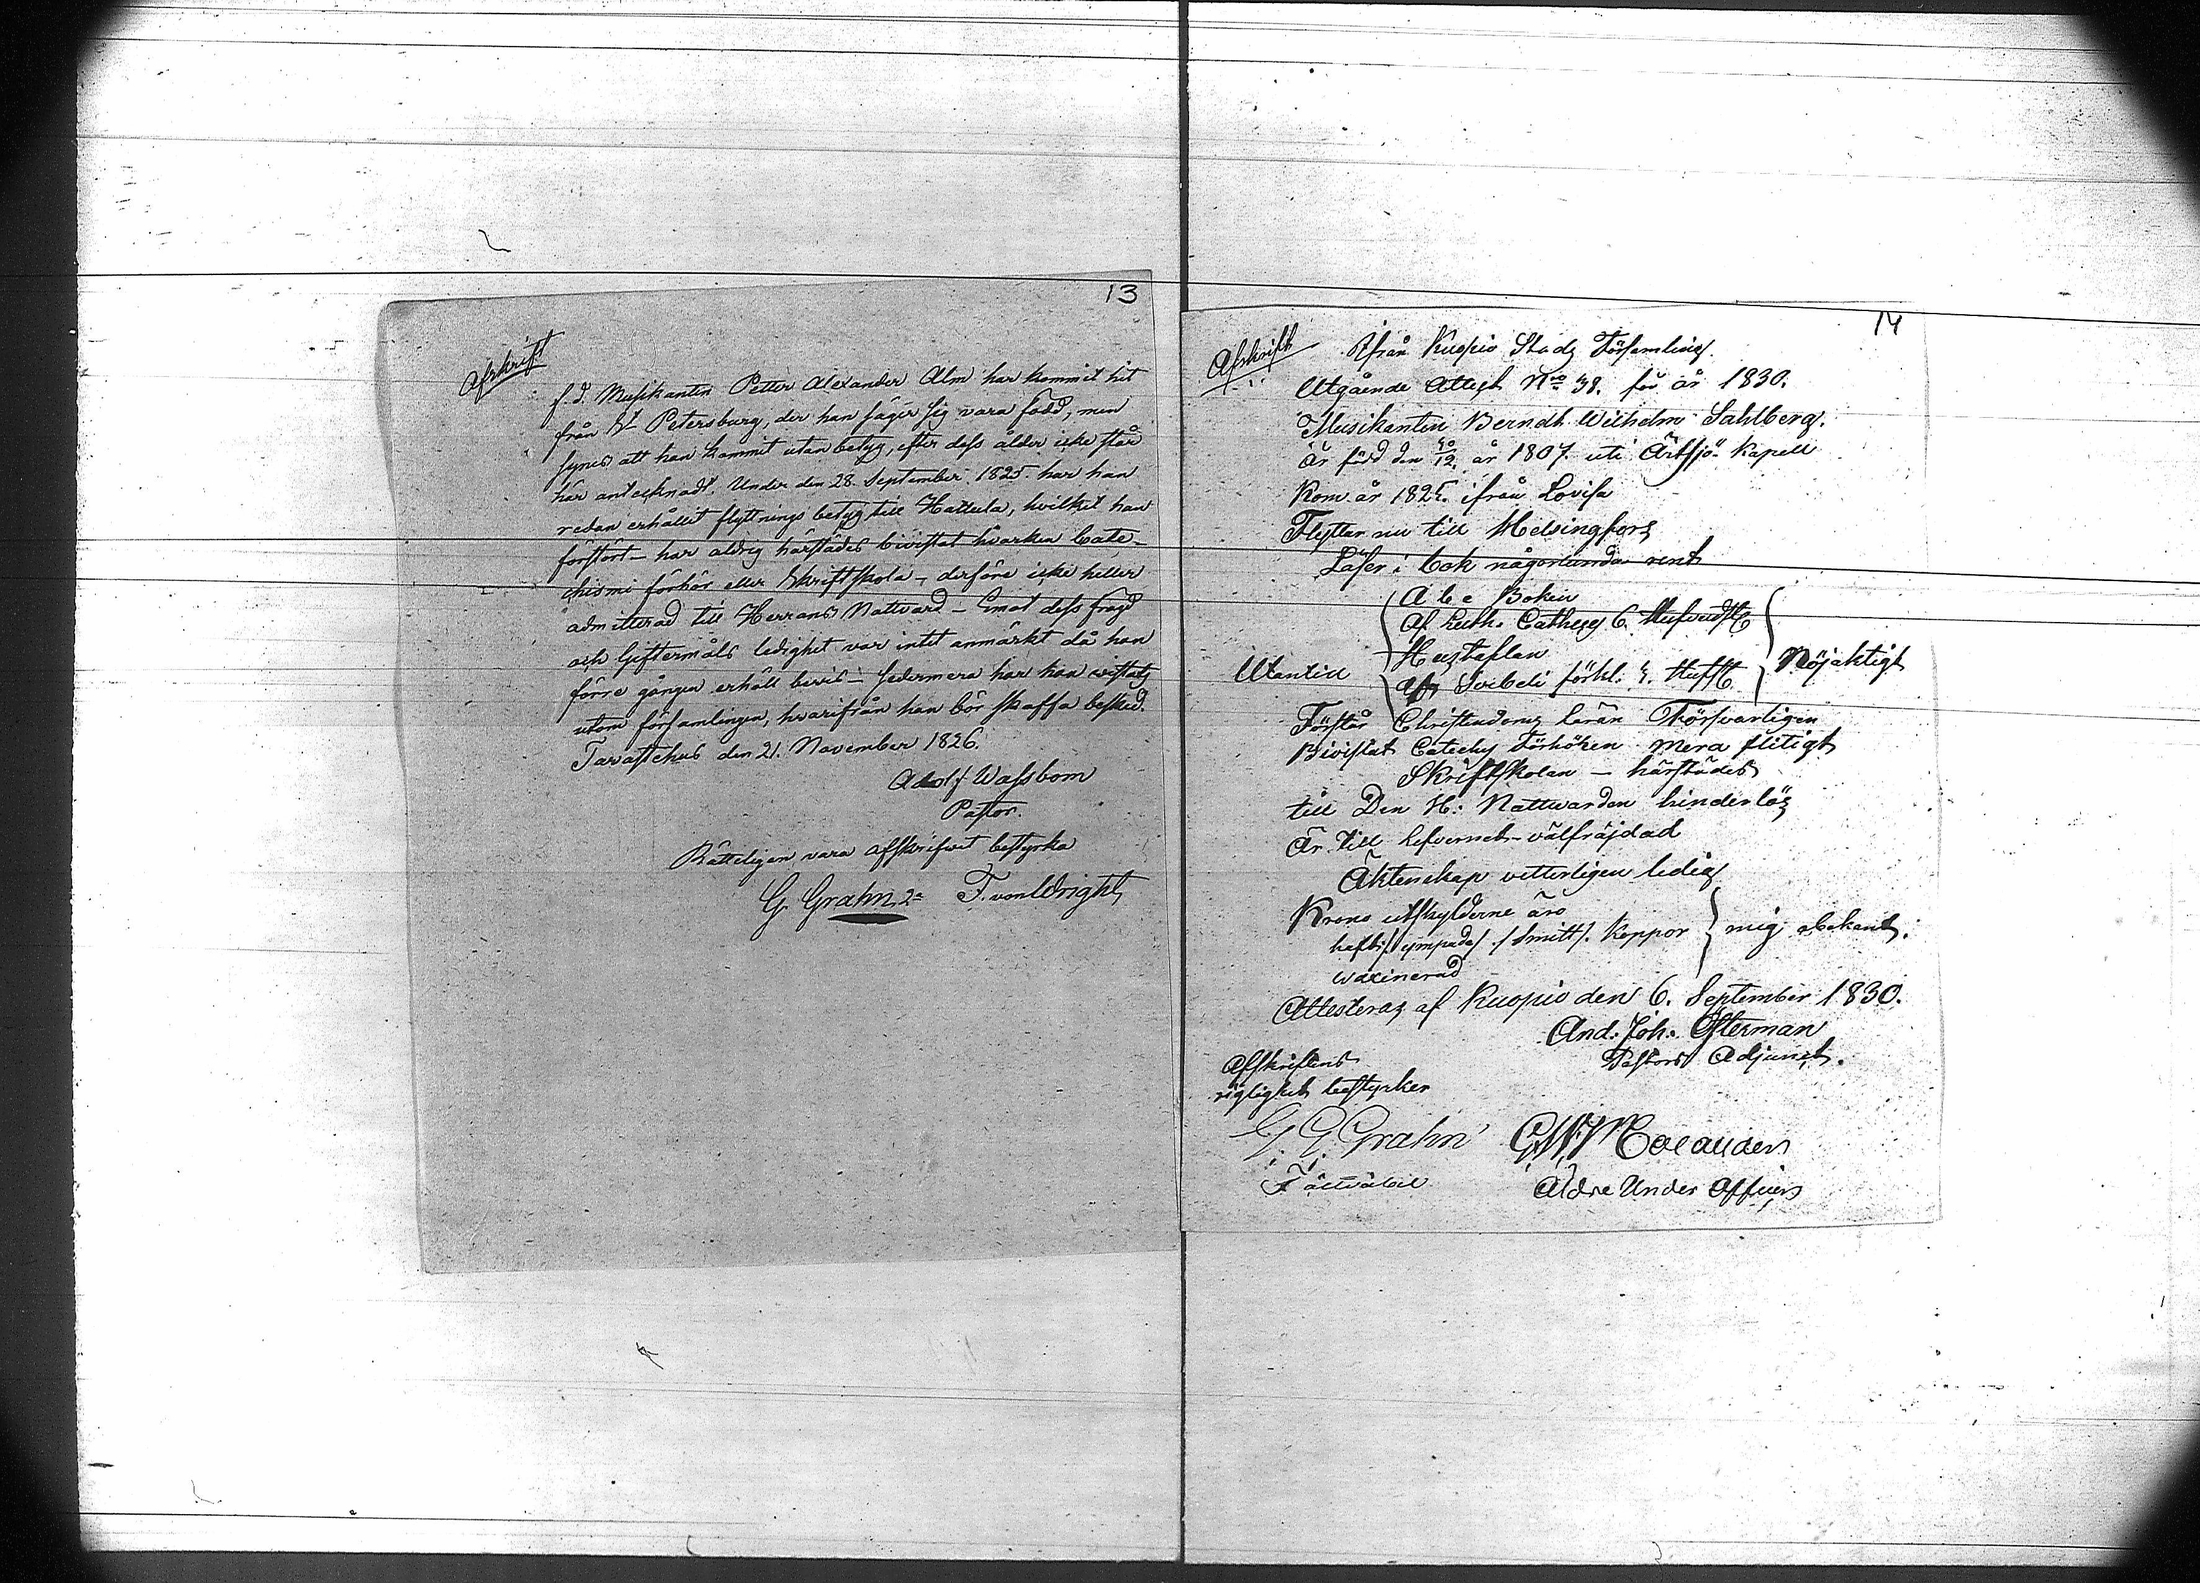 13
Afskrift
f.d. Musikanten Petter Alexander Alm har kommit hit
från St Petersburg, der han säger sig vara född, men
synes att han kommit utan betyg, efter dess ålder icke står
här antecknadt. Under den 28. September 1825. har han
redan erhållit flyttnings betyg till Hattula, hvilket han
förstört – har aldrig härstädes bivistat hvarken Cate-
chismi förhör eller Skriftskola – derföre icke heller
admitterad till Herrans Nattvard – Emot dess frägd
och Giftermåls ledighet var intet anmärkt då han
förre gången erhöll bevis – sedermera har han vistats
utom församlingen, hvarifrån han bör skaffa besked.
Tavastehus den 21. November 1826.
Adolf Wassbom
Pastor.
Rätteligen vara afskrifvit bestyrka
G. Grahn 2n F. von Wright
14
Afskrift
Ifrån Kuopio Stads Församling.
Utgående Attest No 38. för år 1830.
Musikanten Berndt Wilhelm Sahlberg.
är född den /12 år 1807. uti Ärtsjö Kapell
Kom år 1825. ifrån Lovisa
Flyttar nu till Helsingfors
Läser i bok någorlunda rent
Utantill
A b c Boken
Af Luth. Cathes 6. Hufvudst
Hustaflan
Af Svebeli förkl. 5. Hufst
Nöjaktigt
Förstår Christendoms läran Försvarligen
Bivistat Catechs Förhören mera flitigt
Skriftskolan – härstädes
till Den H: Nattwarden hinderlös
Är till lefvernet – välfräjdad
Äktenskap vetterligen ledig
Krono utskylderne äro
haft /: ympade / Smitt /. Koppor
waxinerad
mig obekant.
Attesteras af Kuopio den 6. September 1830.
And: Joh: Österman
Pastors Adjunct.
Afskriftens
rigtighet bestyrker
G. G. Grahn
Fältväbel
Äldre Under Officer